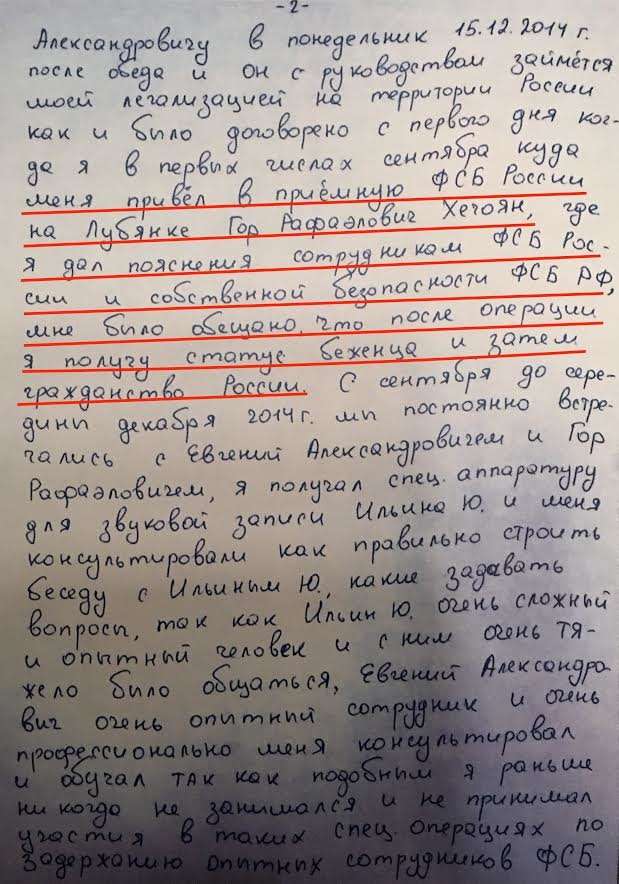 -2-
Александровичу в понедельник 15.12.2014 г.
после обеда и он с руководством займётся
моей легализацией на территории России
как и было договорено с первого дня ког-
да я в первых числах сентября куда
меня привёл в приёмную ФСБ России
на Лубянке Гор Рафаэлович Хечоян, где
я дал пояснения сотрудникам ФСБ Рос-
сии и собственной безопасности ФСБ РФ,
мне было обещано, что после операции
я получу статус беженца и затем
гражданство России. С сентября до сере-
дины декабря 2014г. мы постоянно встре-
чались с Евгений Александровичем и Гор
Рафаэловичем, я получал спец. аппаратуру
для звуковой записи Ильина Ю. и меня
консультировали как правильно строить
беседу с Ильиным Ю., какие задавать
вопросы, так как Ильин Ю. очень сложный
и опытный человек и с ним очень тя-
жело было общаться, Евгений Александро
вич очень опытный сотрудник и очень
профессионально меня консультировал
и обучал так как подобным я раньше
никогда не занимался и не принимал
участия в таких спец. операциях по
задержанию опытных сотрудников ФСБ.